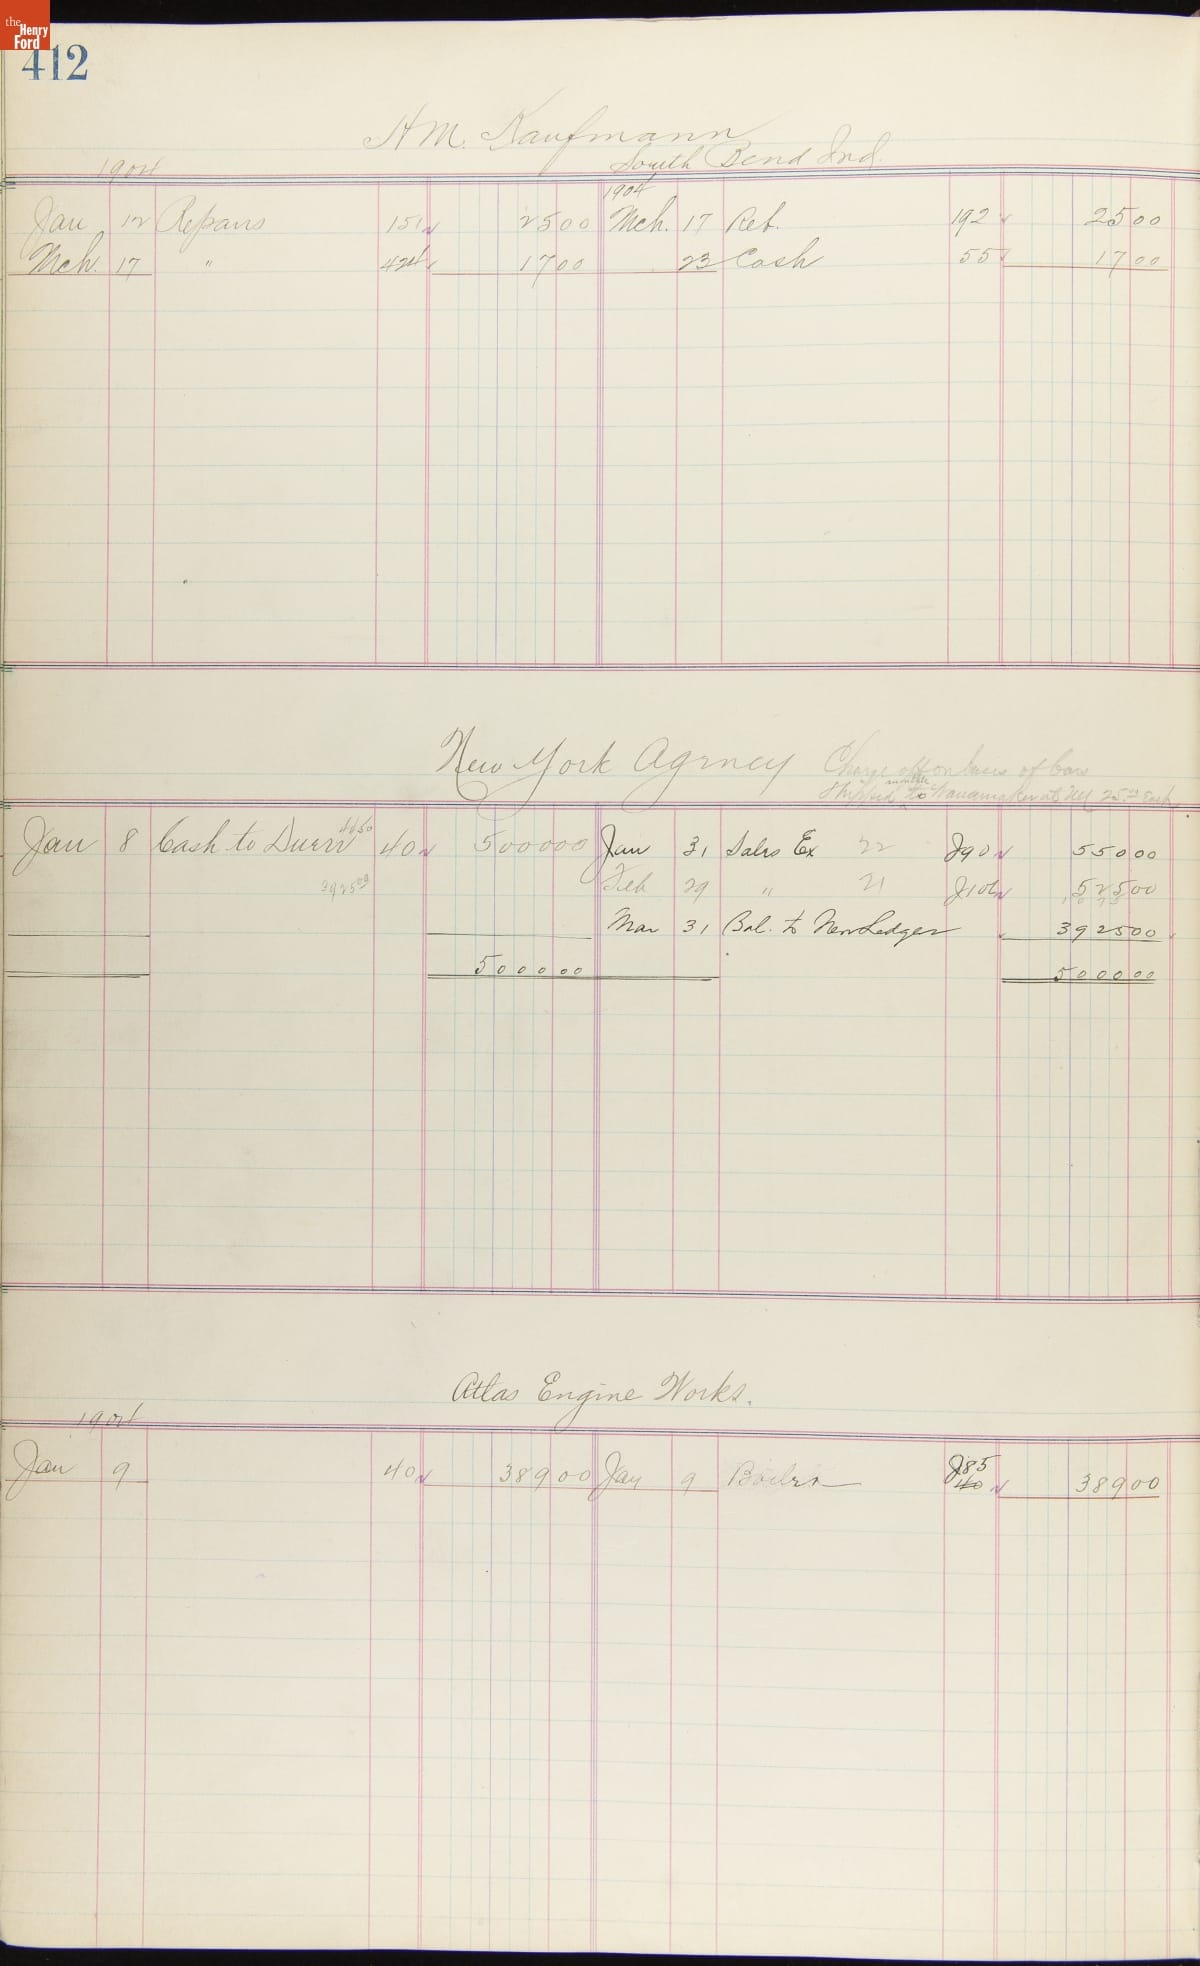 the Henry Ford
412
H M. Kaufmann
South Bend Ind.
1904 1904
Jan 12 Repairs 151 25 00 Mch. 17 Ret. 192 25 00
Mch. 17 " 424 17 00 23 Cash 55 17 00
New York Agency Charge off on basis of cars
shipped monthly to Wanamaker at NY 25.00 Each
Jan 8 Cash to Duerr 4450 40 5000 00 Jan 31 Sales Ex 22 J90 550 00
3925 00 Feb 29 " 21 J106 525 00
Mar 31 Bal. to New Ledger 3925 00
5000 00 5000 00
Atlas Engine Works.
1904
Jan 9 40 389 00 Jan 9 Boilers J85 40 389 00